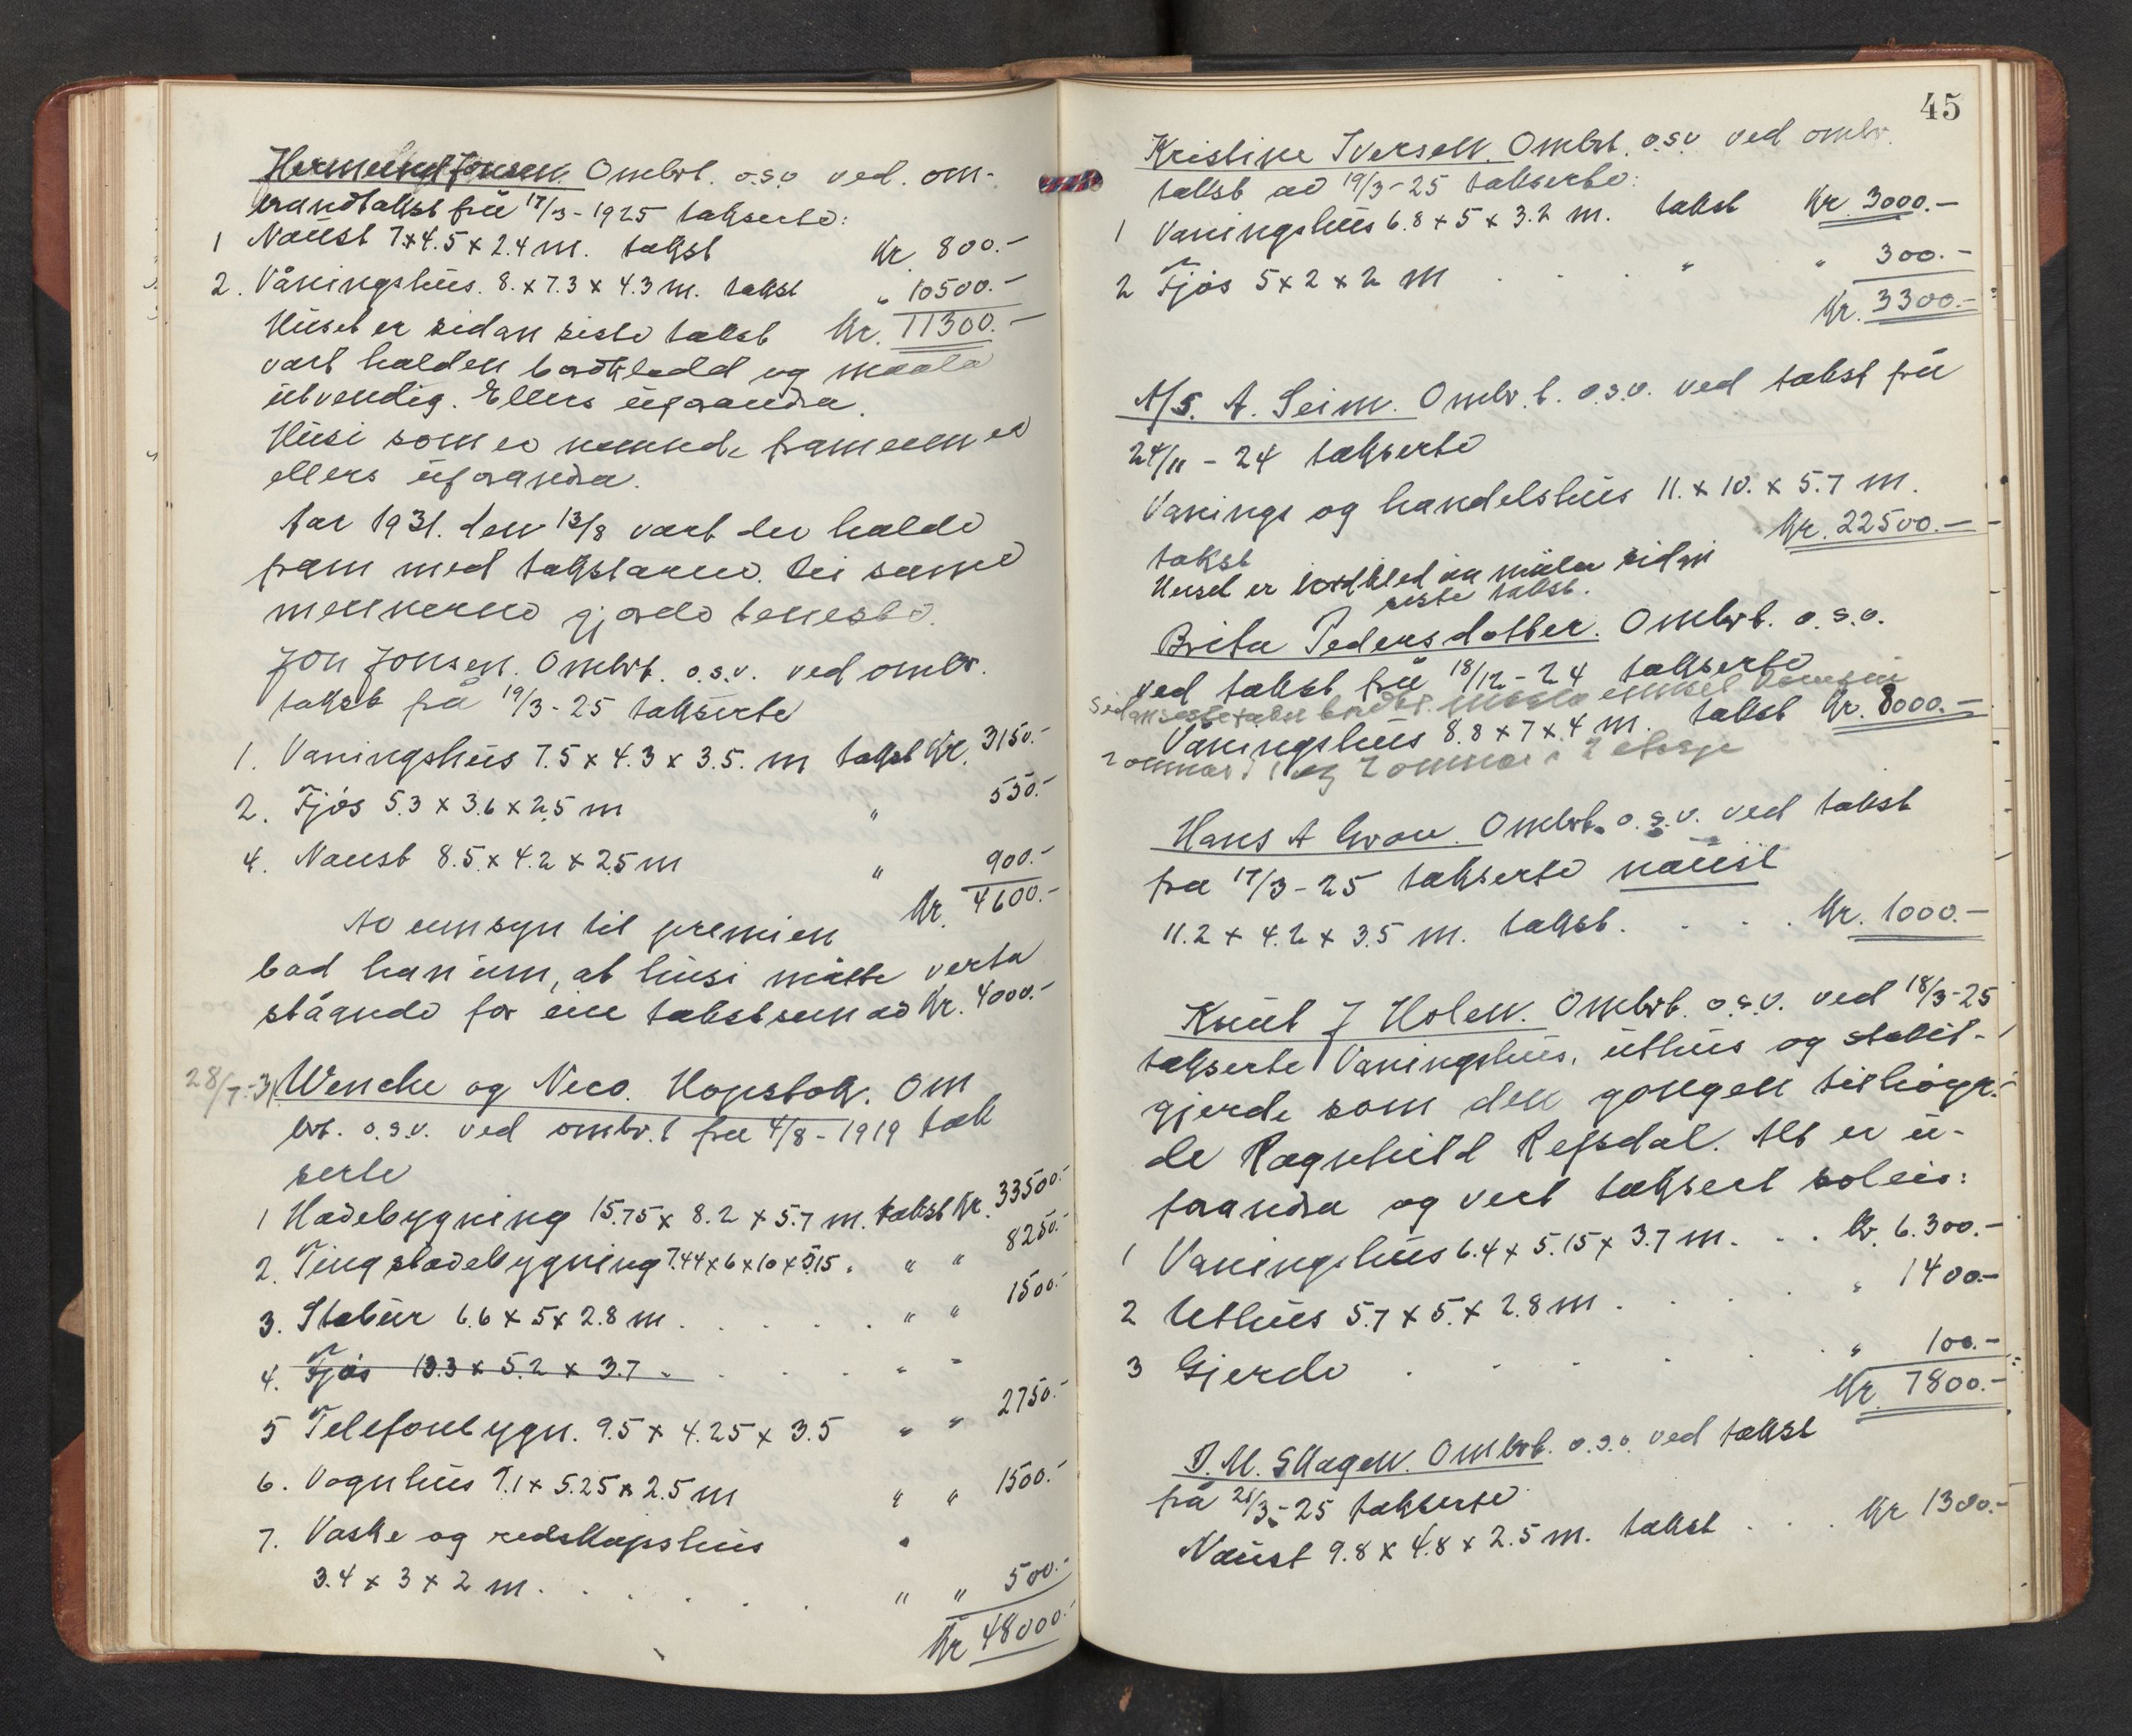 Hermund Jonsen. Ombrt. o.s.v ved. om-
brandtakst frå 17/3 - 1925 takserte:
1 Naust 7x4.5 x 2.4 m. takst Kr 800.-
2. Våningshus. 8. x 7.3 x 4.3 m. takst " 10500.-
Huset er sidan siste takst Kr. 11300.-
vart halden bordkledd og maala
utvendig. Ellers uforandra.
Husi som er nemnde framum er
ellers uforandra.
Aar 1931. den 13/8 vart der halde
fram med takstarne. Dei same
mennerne gjorde teneste.
Jon Jonsen. Ombrt. o.s.v. ved ombr.
takst frå 19/3 - 25 takserte
1. Vaningshus 7.5 x 4.3 x 3.5. m takst Kr. 3150.-
2. Fjøs 5.3 x 3.6 x 2,5 m " 550.-
4. Naust 8.5 x 4.2 x 2,5 m " 900.-
Kr. 4600.-
Av umsyn til premien
bad han um, at husi måtte verta
ståande for ein takstsum av Kr. 4000.-
28/7-31 Wenche og Nico. Hopstok. Om
brt. o.s.v. ved ombr.t fra 4/8 - 1919 tak
serte
1 Hovebygning 15.75 x 8.2 x 5.7 m. takst Kr. 33500.-
2. Tingstovebygning 7.44 x 6 x 10 x 5.15. " " 8250.-
3. Stabur 6.6 x 5 x 2.8 m . . . . . " " 1500.-
4. Fjøs 13.3 x 5.2 x 3.7 . . . . " "
5 Telefonbygn. 9.5 x 4.25 x 3.5 " " 2750.-
6. Vognhus 7.1 x 5.25 x 2.5 m " " 1500.-
7. Vaske og redskapshus "
3.4 x 3 x 2 m . . . . . " " 500.-
Kr 48000.-
45
Kristine Iversen. Ombrt. o.s.v ved ombr.
takst av 19/3 - 25 takserte:
1 Vaningshus 6.8 x 5 x 3.2 m. takst Kr. 3000.-
2 Fjøs 5 x 2 x 2 m . . . " " 300.-
Kr. 3300.-
A/S. A. Seim. Ombr.t. o.s.v. ved takst frå
24/11 - 24 takserte
Vanings og handelshus 11. x 10. x 5.7 m.
takst Kr. 22500.-
Huset er bordkled og måla sidan
siste takst.
Brita Pedersdotter. Ombrt. o.s.v.
ved takst frå 18/12 - 24 takserte
Sidan siste takst bordkl. maala
Våningshus 8.8 x 7 x 4 m. takst Kr. 8000.-
2 omnar i 1 og 2 omnar i 2 etasje
Hans A Gron. Ombrt. o.s.v. ved takst
fra 17/3 - 25 takserte naust
11.2 x 4.2 x 3.5 m. takst. . . . Kr. 1000.-
Knut J Holen. Ombrt. o.s.v. ved 18/3-25
takserte Vaningshus, uthus og stakit-
gjerde som den gongen tilhøyr-
de Ragnhild Refsdal. Alt er u-
forandra og vert taksert soleis:
1 Vaningshus 6.4 x 5.15 x 3.7 m. . . Kr. 6.300.-
2 Uthus 5.7 x 5. x 2.8 m . . . . " 1400.-
3 Gjerde . . . . . " 100.-
Kr 7800.-
P. M. Skagen. Ombrt. o.s.v. ved takst
frå 25/3 - 25 takserte
Naust 9.8 x 4.8 x 2.5 m. takst . . . Kr 1300.-